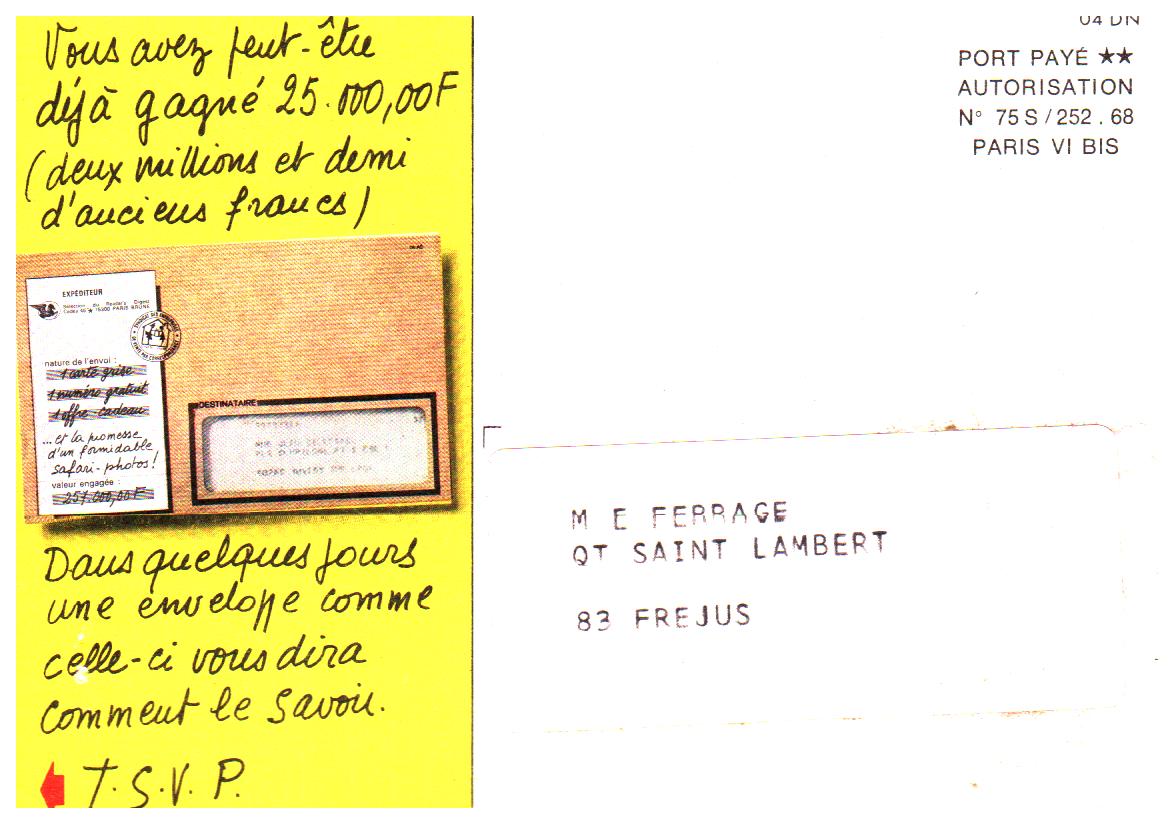 Vous avez peut-être
déjà gagné 25.000,00F
(deux millions et demi
d'anciens francs)
EXPÉDITEUR
Sélection du Reader's Digest
75300 PARIS BRUNE
nature de l'envoi :
1 carte grise
1 numéro gratuit
1 offre-cadeau
...et la promesse
d'un formidable
safari-photos!
valeur engagée :
257.000,00 F
DESTINATAIRE
Dans quelques jours
une enveloppe comme
celle-ci vous dira
comment le savoir.
T.S.V.P.
04 DN
PORT PAYÉ ★★
AUTORISATION
N° 75 S / 252 . 68
PARIS VI BIS
M E FERRAGE
QT SAINT LAMBERT
83 FREJUS